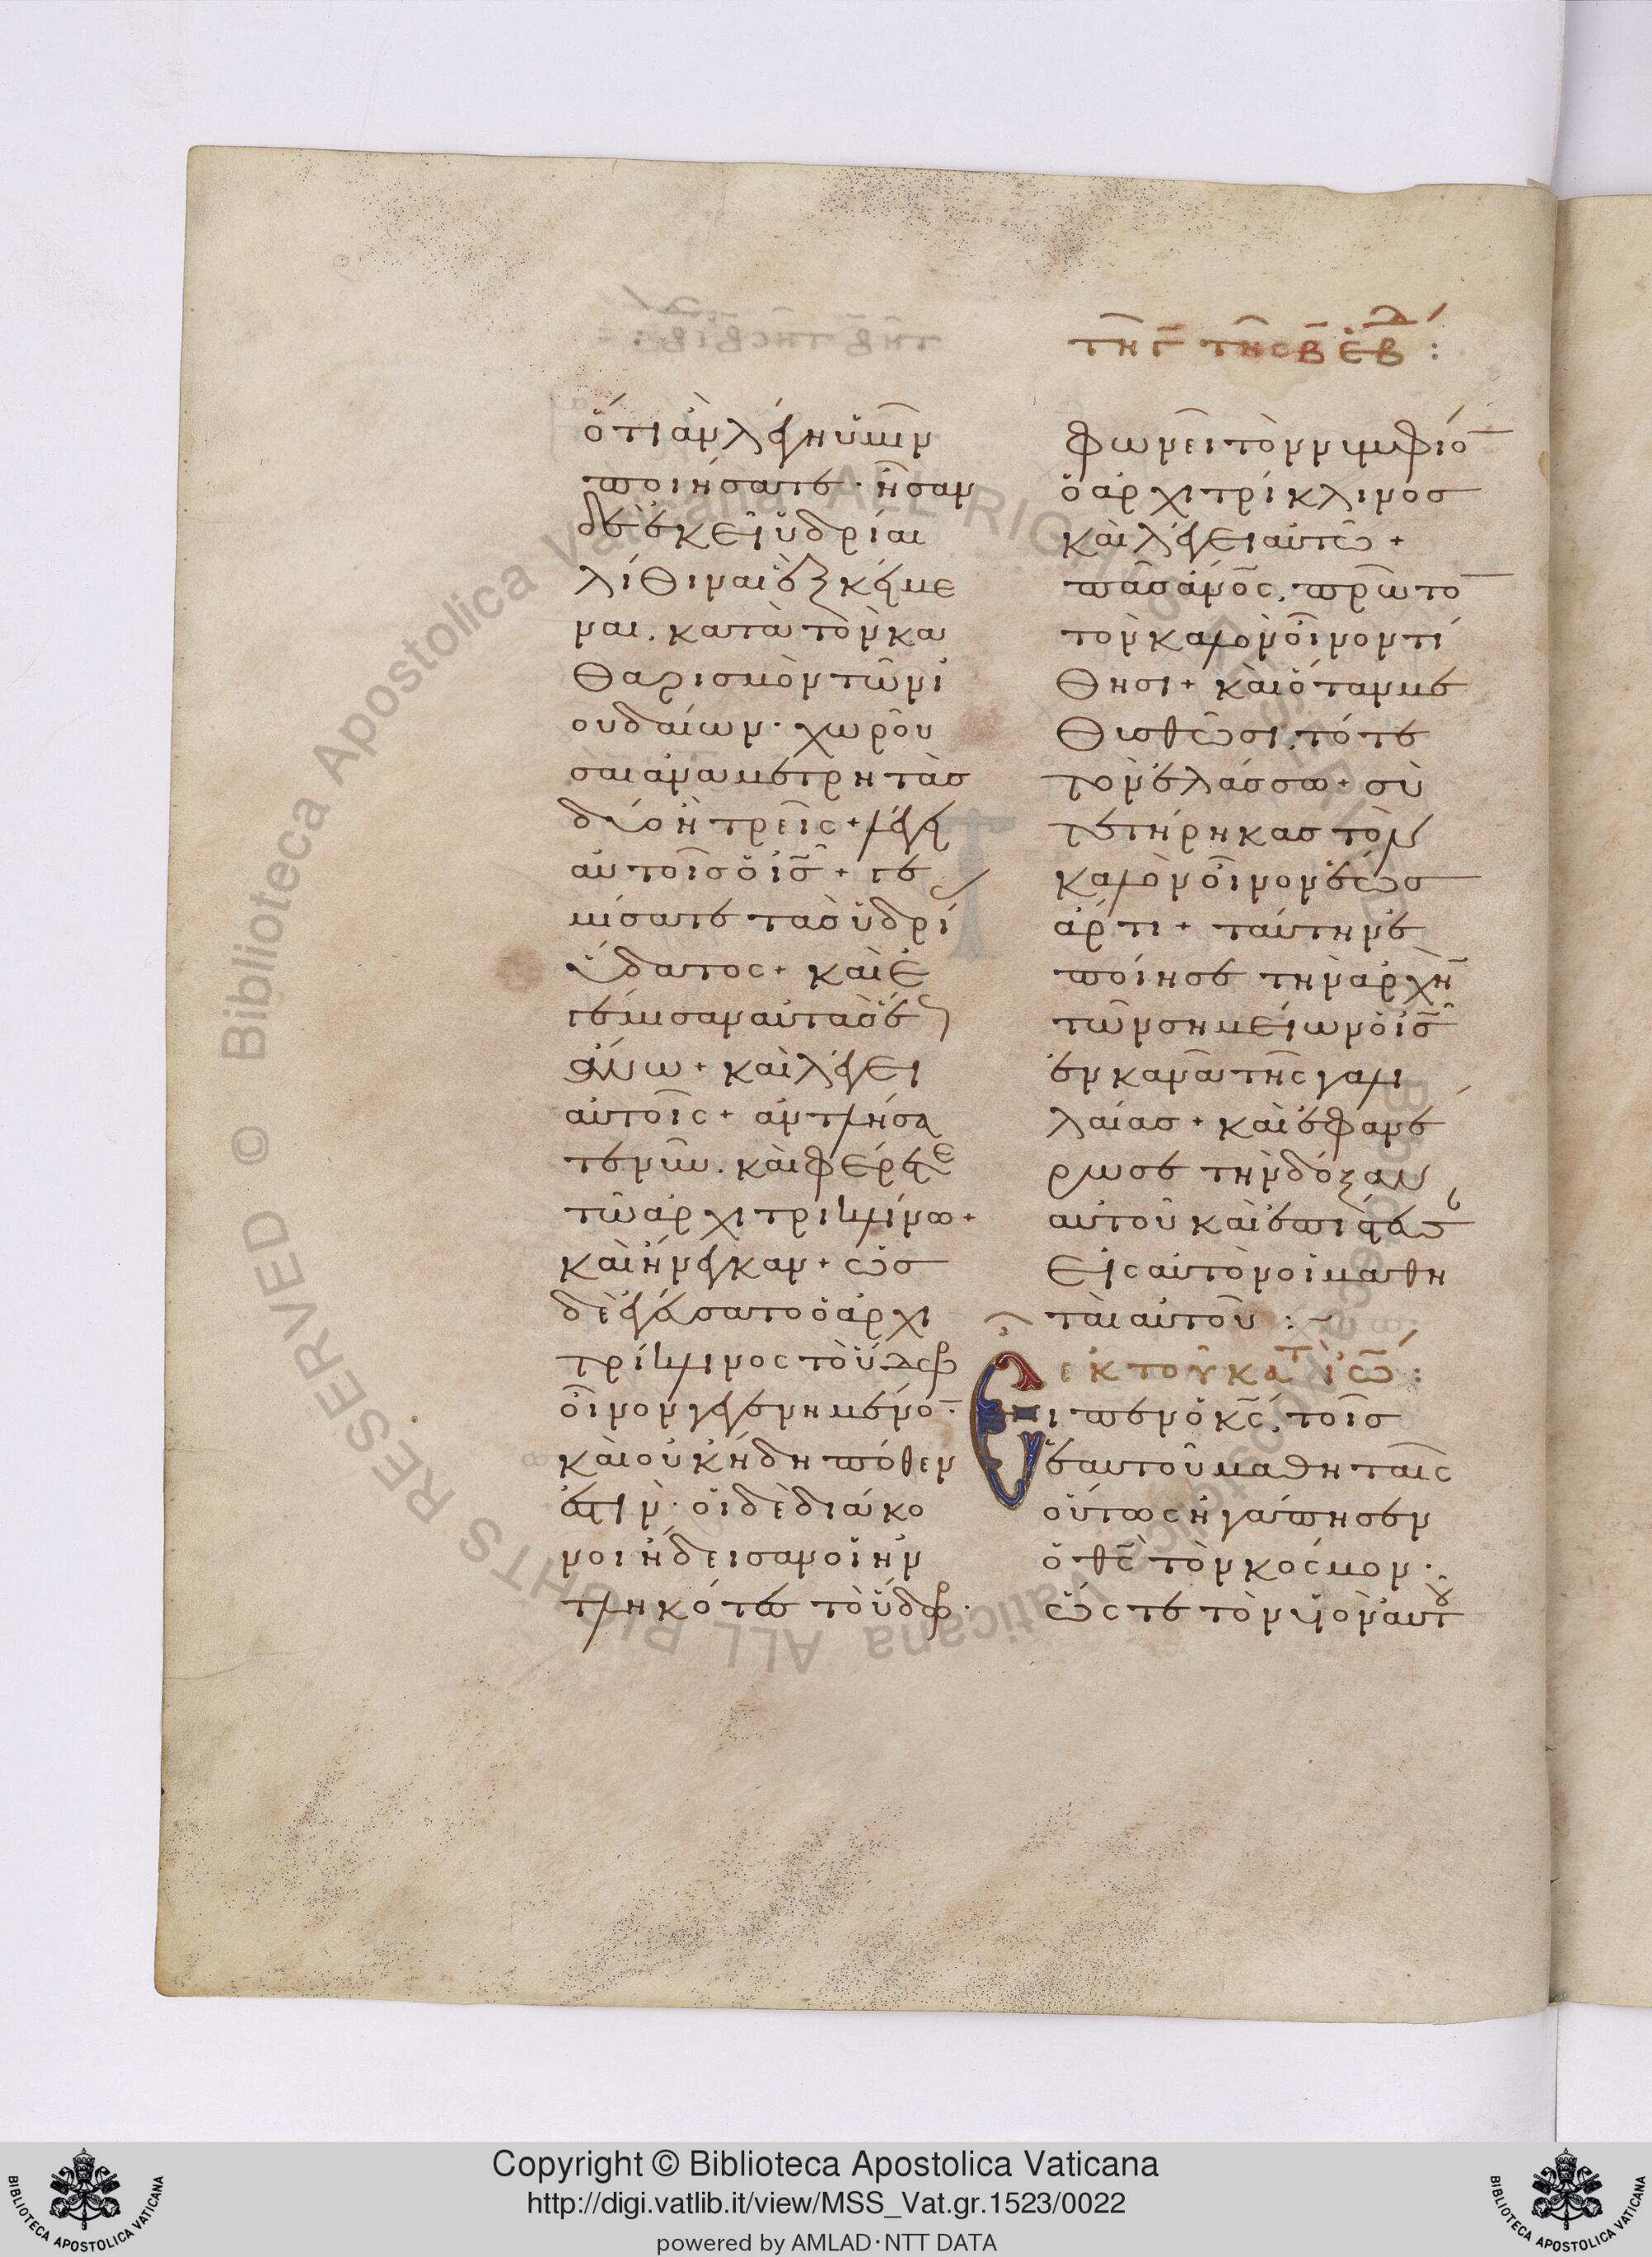 τῆ γ̄ τῆς β̄ ἑβδ :
ὅ,τι ἂν λέγη ὑμῖν
ποιήσατε · ἦσαν
δὲ ἐκεῖ ὑδρίαι
λίθιναι ἓξ κείμε
ναι . κατὰ τὸν κα
θαρισμὸν τῶν ἰ
ουδαίων · χωροῦ
σαι ἀνὰ μετρητὰς
δύο ἢ τρεῖς + λέγει
αὐτοῖς ὁ ις̄ + γε
μίσατε τὰς ὑδρί
ὕδατος + καὶ ἐ
γέμισαν αὐτὰς ἕως
ἄνω + καὶ λέγει
αὐτοῖς + ἀντλήσα
τε νῦν . καὶ φέρετε
τῶ ἀρχιτρικλίνω +
καὶ ἤνεγκαν + ὡς
δὲ ἐγεύσατο ὁ ἀρχι
τρίκλινος τὸ ὕδωρ
οἶνον γεγενημένο̄ ·
καὶ οὐκ ἤδη πόθεν
ἐστίν · οἱ δὲ διάκο
νοι ἤδεισαν οἱ ἠν
τληκότες τὸ ὕδωρ ·
φωνεῖ τὸν νυμφίο̄
ὁ ἀρχιτρίκλινος
καὶ λέγει αὐτῶ +
πᾶς ἄνος̄ . πρῶτο̄
τὸν καλὸν οἶνον τί
θησι + καὶ ὅταν με
θισθῶσι . τότε
τὸν ἐλάσσω + σὺ
τετήρηκας τὸν
καλὸν οἶνον ἕως
ἄρτι + ταύτην ἐ
ποίησε τὴν ἀρχὴ̄
τῶν σημείων ὁ ις̄
ἐν κανᾶ τῆς γαλι
λαίας + καὶ ἐφανέ
ρωσε τὴν δόξαν
αὐτοῦ καὶ ἐπίστευσαν
εἰς αὐτὸν οἱ μαθη
ταὶ αὐτοῦ : ~
ἐκ τοῦ κατ ἰω̄ :
Εἶπεν ὁ κς̄ . τοῖς
ἑαυτοῦ μαθηταῖς
οὕτως ἠγάπησεν
ὁ θς̄ τὸν κόσμον ·
ὥστε τὸν υἱὸν αὐτοῦ
© Biblioteca Apostolica Vaticana ALL RIGHTS RESERVED
© Biblioteca Apostolica Vaticana ALL RIGHTS RESERVED
Copyright © Biblioteca Apostolica Vaticana
http://digi.vatlib.it/view/MSS_Vat.gr.1523/0022
powered by AMLAD·NTT DATA
BIBLIOTECA APOSTOLICA VATICANA
BIBLIOTECA APOSTOLICA VATICANA